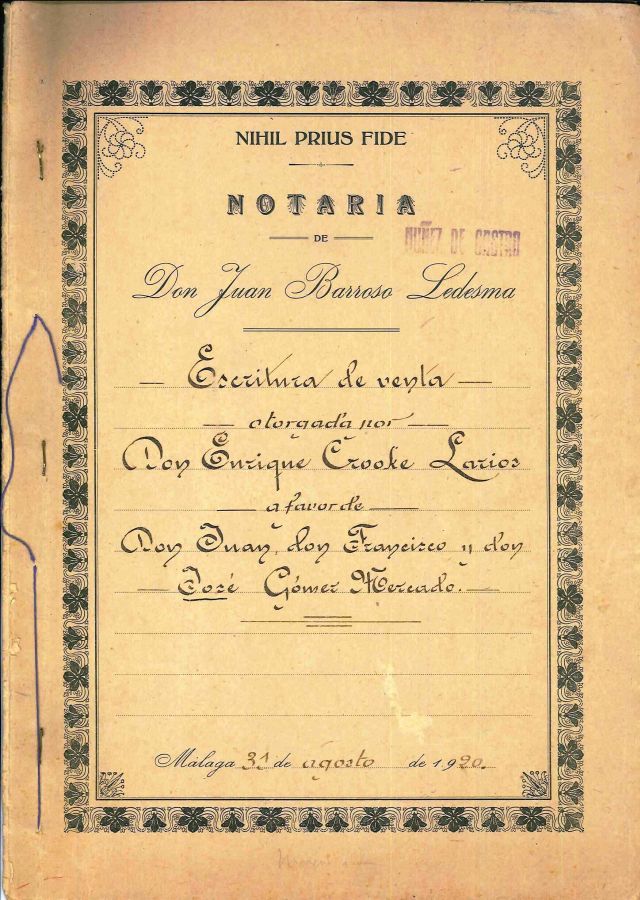 NIHIL PRIUS FIDE
NOTARIA
NUÑEZ DE CASTRO
DE
Don Juan Barroso Ledesma
— Escritura de venta —
— otorgada por —
Don Enrique Crooke Larios
— a favor de —
Don Juan, don Francisco y don
— José Gómez Mercado. —
Málaga 31 de agosto de 1920.